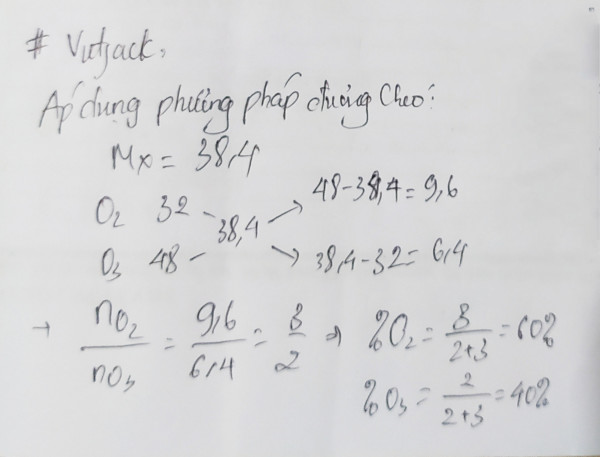 # Vietjack,
Áp dụng phương pháp đường chéo:
Mx = 38,4
O₂ 32 38,4 48-38,4 = 9,6
O₃ 48 38,4-32 = 6,4
→ nO₂/nO₃ = 9,6/6,4 = 3/2 ⇒ %O₂ = 3/2+3 = 60%
%O₃ = 2/2+3 = 40%